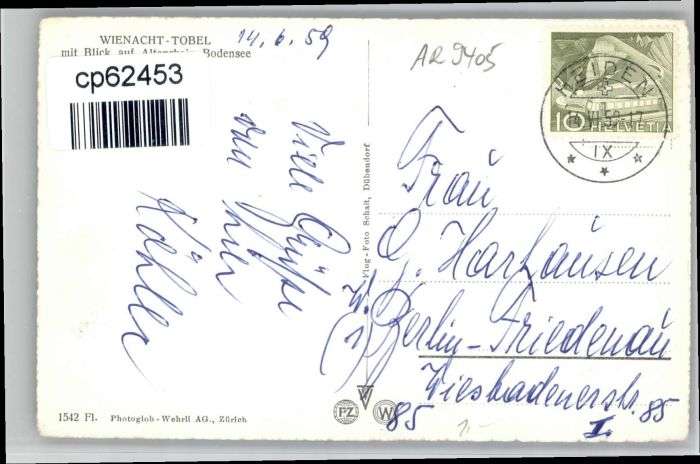 WIENACHT-TOBEL
mit Blick auf Altenrhein Bodensee
14.6.59
AR 9405
cp62453
HEIDEN
IX
10 HELVETIA
Viele Grüße
von hier
Köhler
Flug-Foto Schait, Dübendorf
Frau
G. Harhausen
Berlin-Friedenau
Wiesbadenerstr. 85
85 I.
1.-
1542 Fl. Photoglob-Wehrli AG., Zürich
PZ W